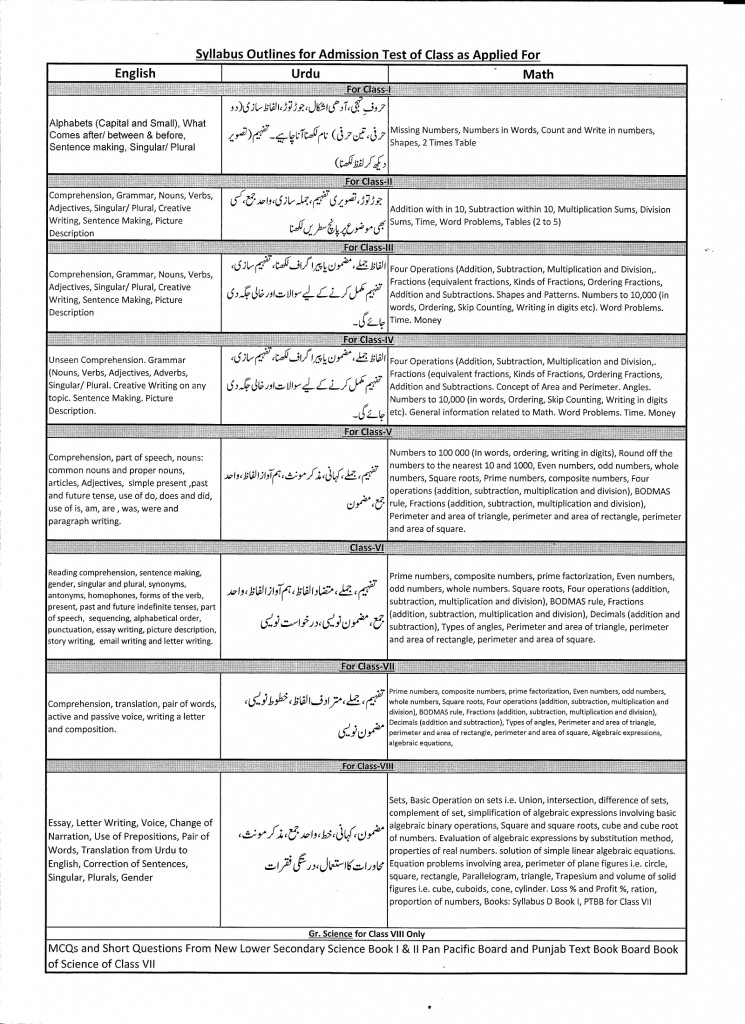 Syllabus Outlines for Admission Test of Class as Applied For
English Urdu Math
For Class-I
Alphabets (Capital and Small), What
Comes after/ between & before,
Sentence making, Singular/ Plural
حروف تہجی، آدھی اشکال، جوڑ توڑ، الفاظ سازی (دو
حرفی، تین حرفی) نام لکھنا آنا چاہیے۔ تفہیم (تصویر
دیکھ کر لفظ لکھنا)
Missing Numbers, Numbers in Words, Count and Write in numbers,
Shapes, 2 Times Table
For Class-II
Comprehension, Grammar, Nouns, Verbs,
Adjectives, Singular/ Plural, Creative
Writing, Sentence Making, Picture
Description
جوڑ توڑ، تصویری تفہیم، جملہ سازی، واحد جمع، کسی
بھی موضوع پر پانچ سطریں لکھنا
Addition with in 10, Subtraction within 10, Multiplication Sums, Division
Sums, Time, Word Problems, Tables (2 to 5)
For Class-III
Comprehension, Grammar, Nouns, Verbs,
Adjectives, Singular/ Plural, Creative
Writing, Sentence Making, Picture
Description
الفاظ جملے، مضمون یا پیرا گراف لکھنا، تفہیم سازی،
تفہیم مکمل کرنے کے لیے سوالات اور خالی جگہ دی
جائے گی۔
Four Operations (Addition, Subtraction, Multiplication and Division,.
Fractions (equivalent fractions, Kinds of Fractions, Ordering Fractions,
Addition and Subtractions. Shapes and Patterns. Numbers to 10,000 (in
words, Ordering, Skip Counting, Writing in digits etc). Word Problems.
Time. Money
For Class-IV
Unseen Comprehension. Grammar
(Nouns, Verbs, Adjectives, Adverbs,
Singular/ Plural. Creative Writing on any
topic. Sentence Making. Picture
Description.
الفاظ جملے، مضمون یا پیرا گراف لکھنا، تفہیم سازی،
تفہیم مکمل کرنے کے لیے سوالات اور خالی جگہ دی
جائے گی۔
Four Operations (Addition, Subtraction, Multiplication and Division,.
Fractions (equivalent fractions, Kinds of Fractions, Ordering Fractions,
Addition and Subtractions. Concept of Area and Perimeter. Angles.
Numbers to 10,000 (in words, Ordering, Skip Counting, Writing in digits
etc). General information related to Math. Word Problems. Time. Money
For Class-V
Comprehension, part of speech, nouns:
common nouns and proper nouns,
articles, Adjectives, simple present ,past
and future tense, use of do, does and did,
use of is, am, are , was, were and
paragraph writing.
تفہیم، جملے، کہانی، مذکر مونث، ہم آواز الفاظ، واحد
جمع، مضمون
Numbers to 100 000 (In words, ordering, writing in digits), Round off the
numbers to the nearest 10 and 1000, Even numbers, odd numbers, whole
numbers, Square roots, Prime numbers, composite numbers, Four
operations (addition, subtraction, multiplication and division), BODMAS
rule, Fractions (addition, subtraction, multiplication and division),
Perimeter and area of triangle, perimeter and area of rectangle, perimeter
and area of square.
Class-VI
Reading comprehension, sentence making,
gender, singular and plural, synonyms,
antonyms, homophones, forms of the verb,
present, past and future indefinite tenses, part
of speech, sequencing, alphabetical order,
punctuation, essay writing, picture description,
story writing, email writing and letter writing.
تفہیم، جملے، متضاد الفاظ، ہم آواز الفاظ، واحد
جمع، مضمون نویسی، درخواست نویسی
Prime numbers, composite numbers, prime factorization, Even numbers,
odd numbers, whole numbers. Square roots, Four operations (addition,
subtraction, multiplication and division), BODMAS rule, Fractions
(addition, subtraction, multiplication and division), Decimals (addition and
subtraction), Types of angles, Perimeter and area of triangle, perimeter
and area of rectangle, perimeter and area of square.
For Class-VII
Comprehension, translation, pair of words,
active and passive voice, writing a letter
and composition.
تفہیم، جملے، مترادف الفاظ، خطوط نویسی،
مضمون نویسی
Prime numbers, composite numbers, prime factorization, Even numbers, odd numbers,
whole numbers, Square roots, Four operations (addition, subtraction, multiplication and
division), BODMAS rule, Fractions (addition, subtraction, multiplication and division),
Decimals (addition and subtraction), Types of angles, Perimeter and area of triangle,
perimeter and area of rectangle, perimeter and area of square, Algebraic expressions,
algebraic equations,
For Class-VIII
Essay, Letter Writing, Voice, Change of
Narration, Use of Prepositions, Pair of
Words, Translation from Urdu to
English, Correction of Sentences,
Singular, Plurals, Gender
مضمون، کہانی، خط، واحد جمع، مذکر مونث،
محاورات کا استعمال، درستگی فقرات
Sets, Basic Operation on sets i.e. Union, intersection, difference of sets,
complement of set, simplification of algebraic expressions involving basic
algebraic binary operations, Square and square roots, cube and cube root
of numbers. Evaluation of algebraic expressions by substitution method,
properties of real numbers. solution of simple linear algebraic equations.
Equation problems involving area, perimeter of plane figures i.e. circle,
square, rectangle, Parallelogram, triangle, Trapesium and volume of solid
figures i.e. cube, cuboids, cone, cylinder. Loss % and Profit %, ration,
proportion of numbers, Books: Syllabus D Book I, PTBB for Class VII
Gr. Science for Class VIII Only
MCQs and Short Questions From New Lower Secondary Science Book I & II Pan Pacific Board and Punjab Text Book Board Book
of Science of Class VII